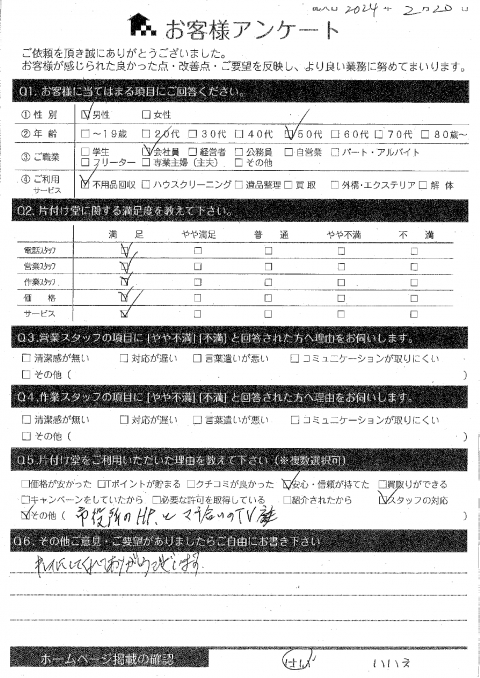 2024年 2月20日
お客様アンケート
ご依頼を頂き誠にありがとうございました。
お客様が感じられた良かった点・改善点・ご要望を反映し、より良い業務に努めてまいります。
Q1. お客様に当てはまる項目にご回答ください。
①性 別 ☑男性 □女性
②年 齢 □～19歳 □20代 □30代 □40代 ☑50代 □60代 □70代 □80歳～
③ご職業 □学生 ☑会社員 □経営者 □公務員 □自営業 □パート・アルバイト
□フリーター □専業主婦（主夫） □その他
④ご利用サービス ☑不用品回収 □ハウスクリーニング □遺品整理 □買取 □外構・エクステリア □解体
Q2. 片付け堂に関する満足度を教えて下さい。
満 足 やや満足 普 通 やや不満 不 満
電話スタッフ ☑ □ □ □ □
営業スタッフ ☑ □ □ □ □
作業スタッフ ☑ □ □ □ □
価 格 ☑ □ □ □ □
サービス ☑ □ □ □ □
Q3.営業スタッフの項目に [やや不満] [不満] と回答された方へ理由をお伺いします。
□清潔感が無い □対応が遅い □言葉遣いが悪い □コミュニケーションが取りにくい
□その他（ ）
Q4.作業スタッフの項目に [やや不満] [不満] と回答された方へ理由をお伺いします。
□清潔感が無い □対応が遅い □言葉遣いが悪い □コミュニケーションが取りにくい
□その他（ ）
Q5.片付け堂をご利用いただいた理由を教えて下さい（※複数選択可）
□価格が安かった □Tポイントが貯まる □クチコミが良かった ☑安心・信頼が持てた □買取りができる
□キャンペーンをしていたから □必要な許可を取得している □紹介されたから ☑スタッフの対応
☑その他（ 市役所のHP.と の TV
Q6. その他ご意見・ご要望がありましたらご自由にお書き下さい
キレイにしてくれてありがとうございます.
ホームページ掲載の確認 はい いいえ